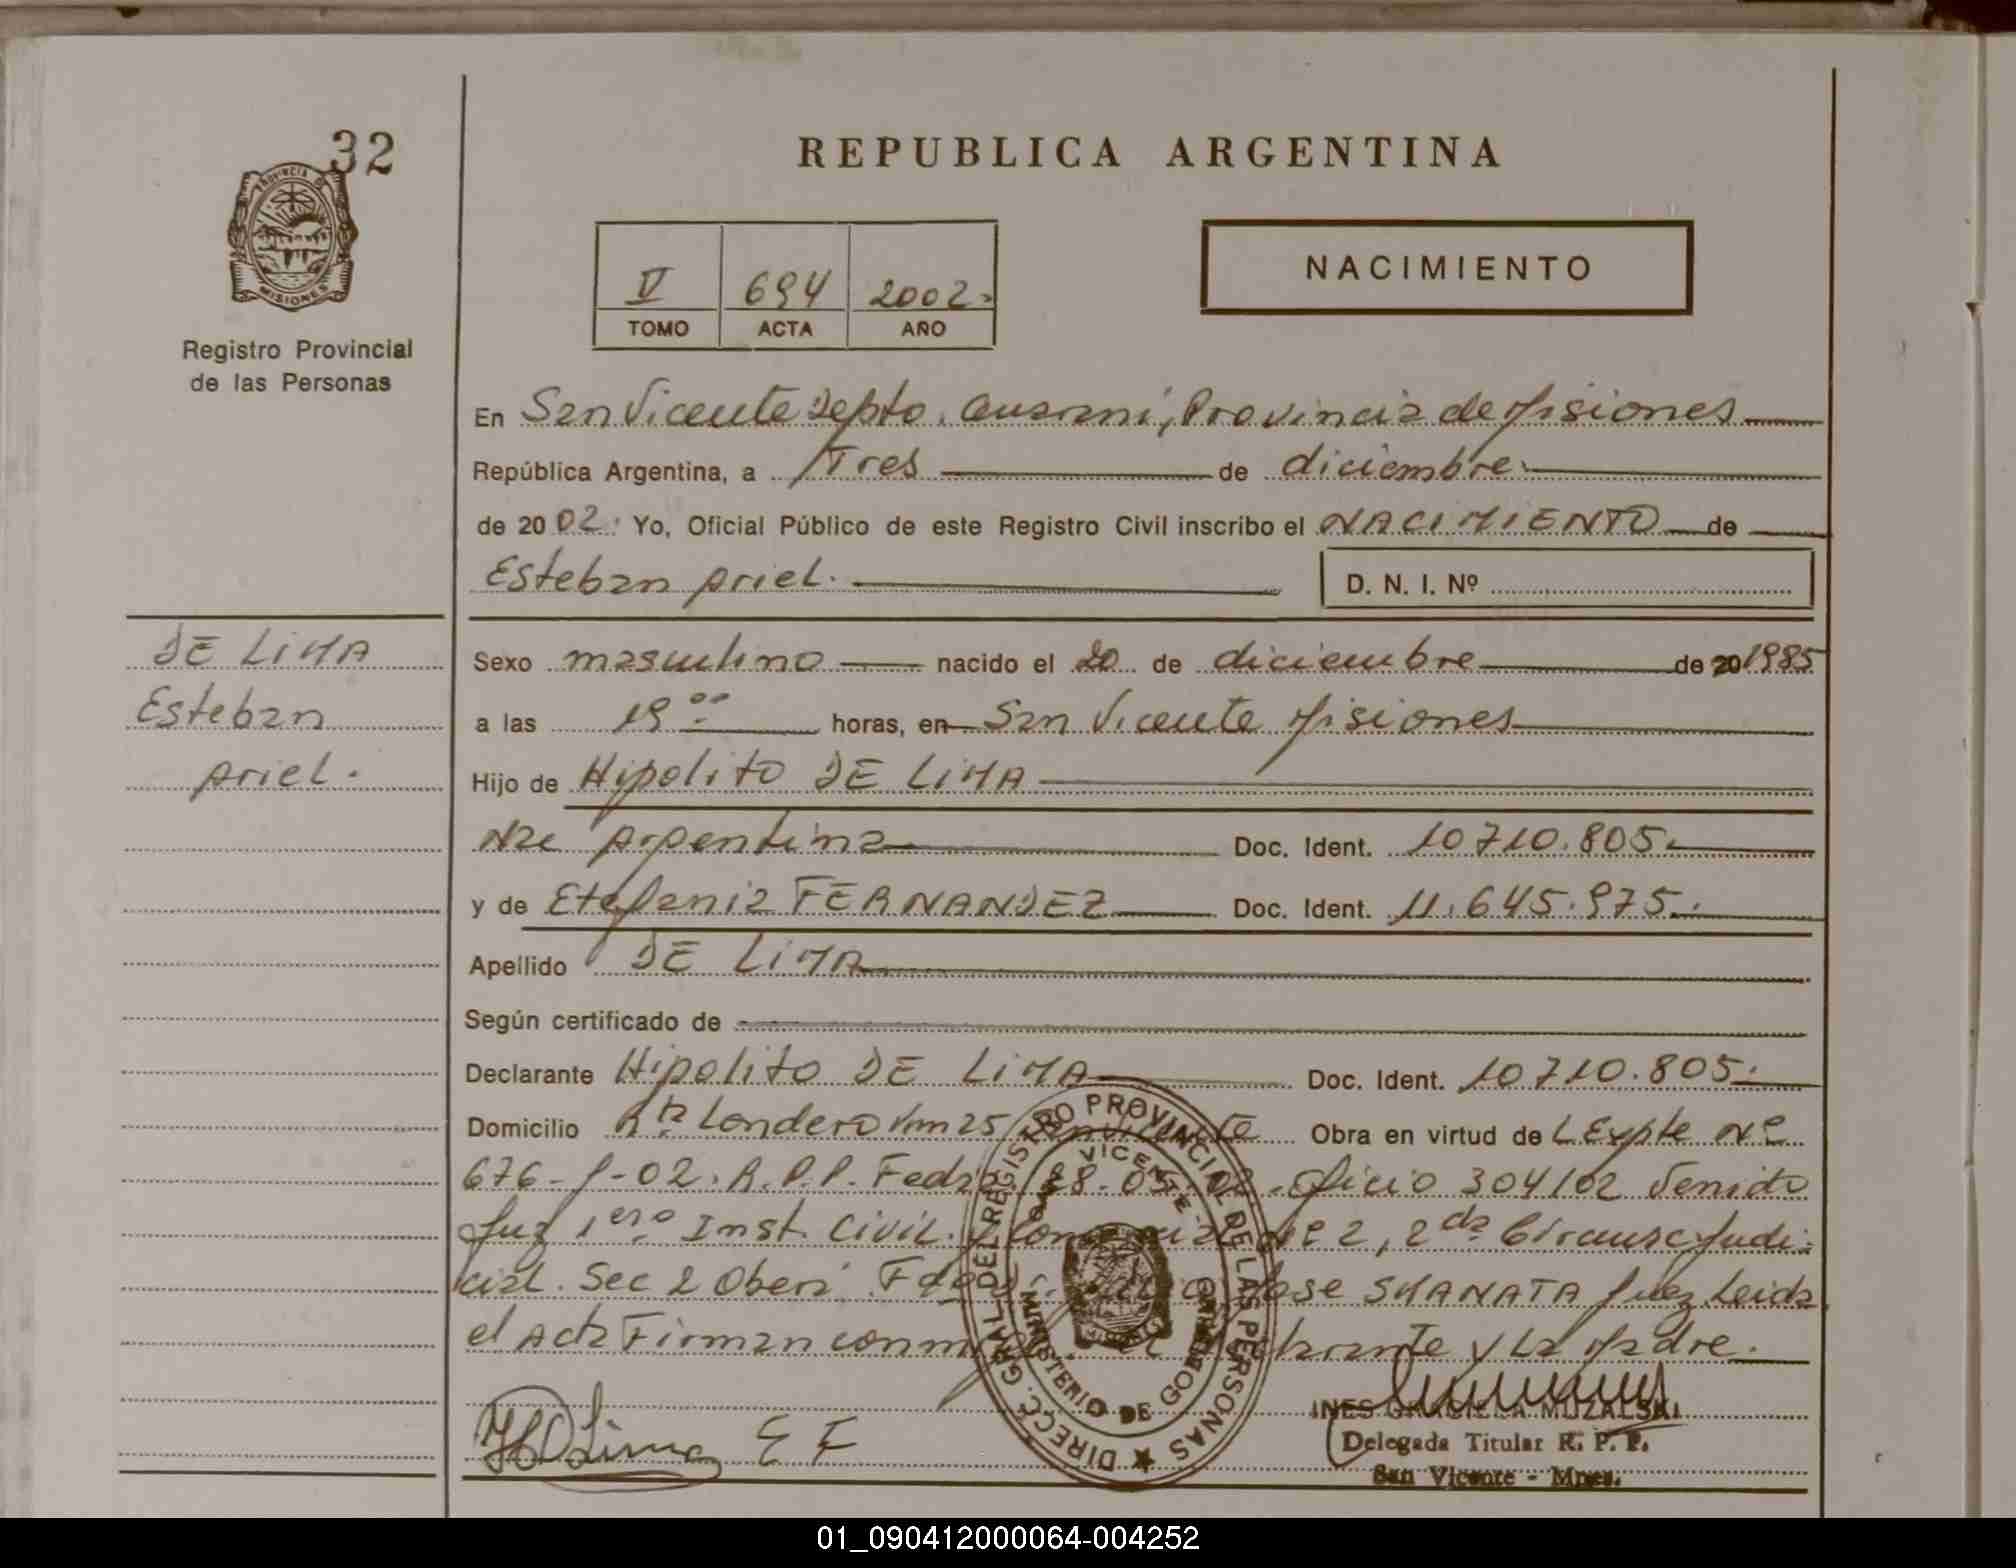 32
PROVINCIA DE
MISIONES
Registro Provincial
de las Personas
REPUBLICA ARGENTINA
V 694 2002
TOMO ACTA AÑO
NACIMIENTO
En San Vicente Depto. Guarani, Provincia de Misiones
República Argentina, a Tres de diciembre
de 2002. Yo, Oficial Público de este Registro Civil inscribo el NACIMIENTO de
Esteban Ariel. D. N. I. Nº
DE LIMA
Esteban
Ariel.
Sexo masculino nacido el 20 de diciembre de 20 1985
a las 19 00 horas, en San Vicente Misiones
Hijo de Hipolito DE LIMA
Nac Argentina Doc. Ident. 10710.805.
y de Etefania FERNANDEZ Doc. Ident. 11.645.975.
Apellido DE LIMA
Según certificado de
Declarante Hipolito DE LIMA Doc. Ident. 10710.805.
Domicilio Rta Londero Km 25 San Vicente Obra en virtud de L Expte Nº
676-P-02. R.P.P. Fedra. 28-05-02. Oficio 304/02 Venido
Juz 1ero Inst. Civil y Comercial Nº 2, 2da Circunsc Judi-
cial. Sec 2 Obera. José SKANATA Juez Leida
el Acta Firman conmigo el declarante y La Madre.
H D Lima E F
DIRECC. GRAL. DEL REGISTRO PROVINCIAL DE LAS PERSONAS
SAN VICENTE
MINISTERIO DE GOBIERNO
INES GRACIELA MUZALSKI
Delegada Titular R. P. P.
San Vicente - Mnes.
01_090412000064-004252